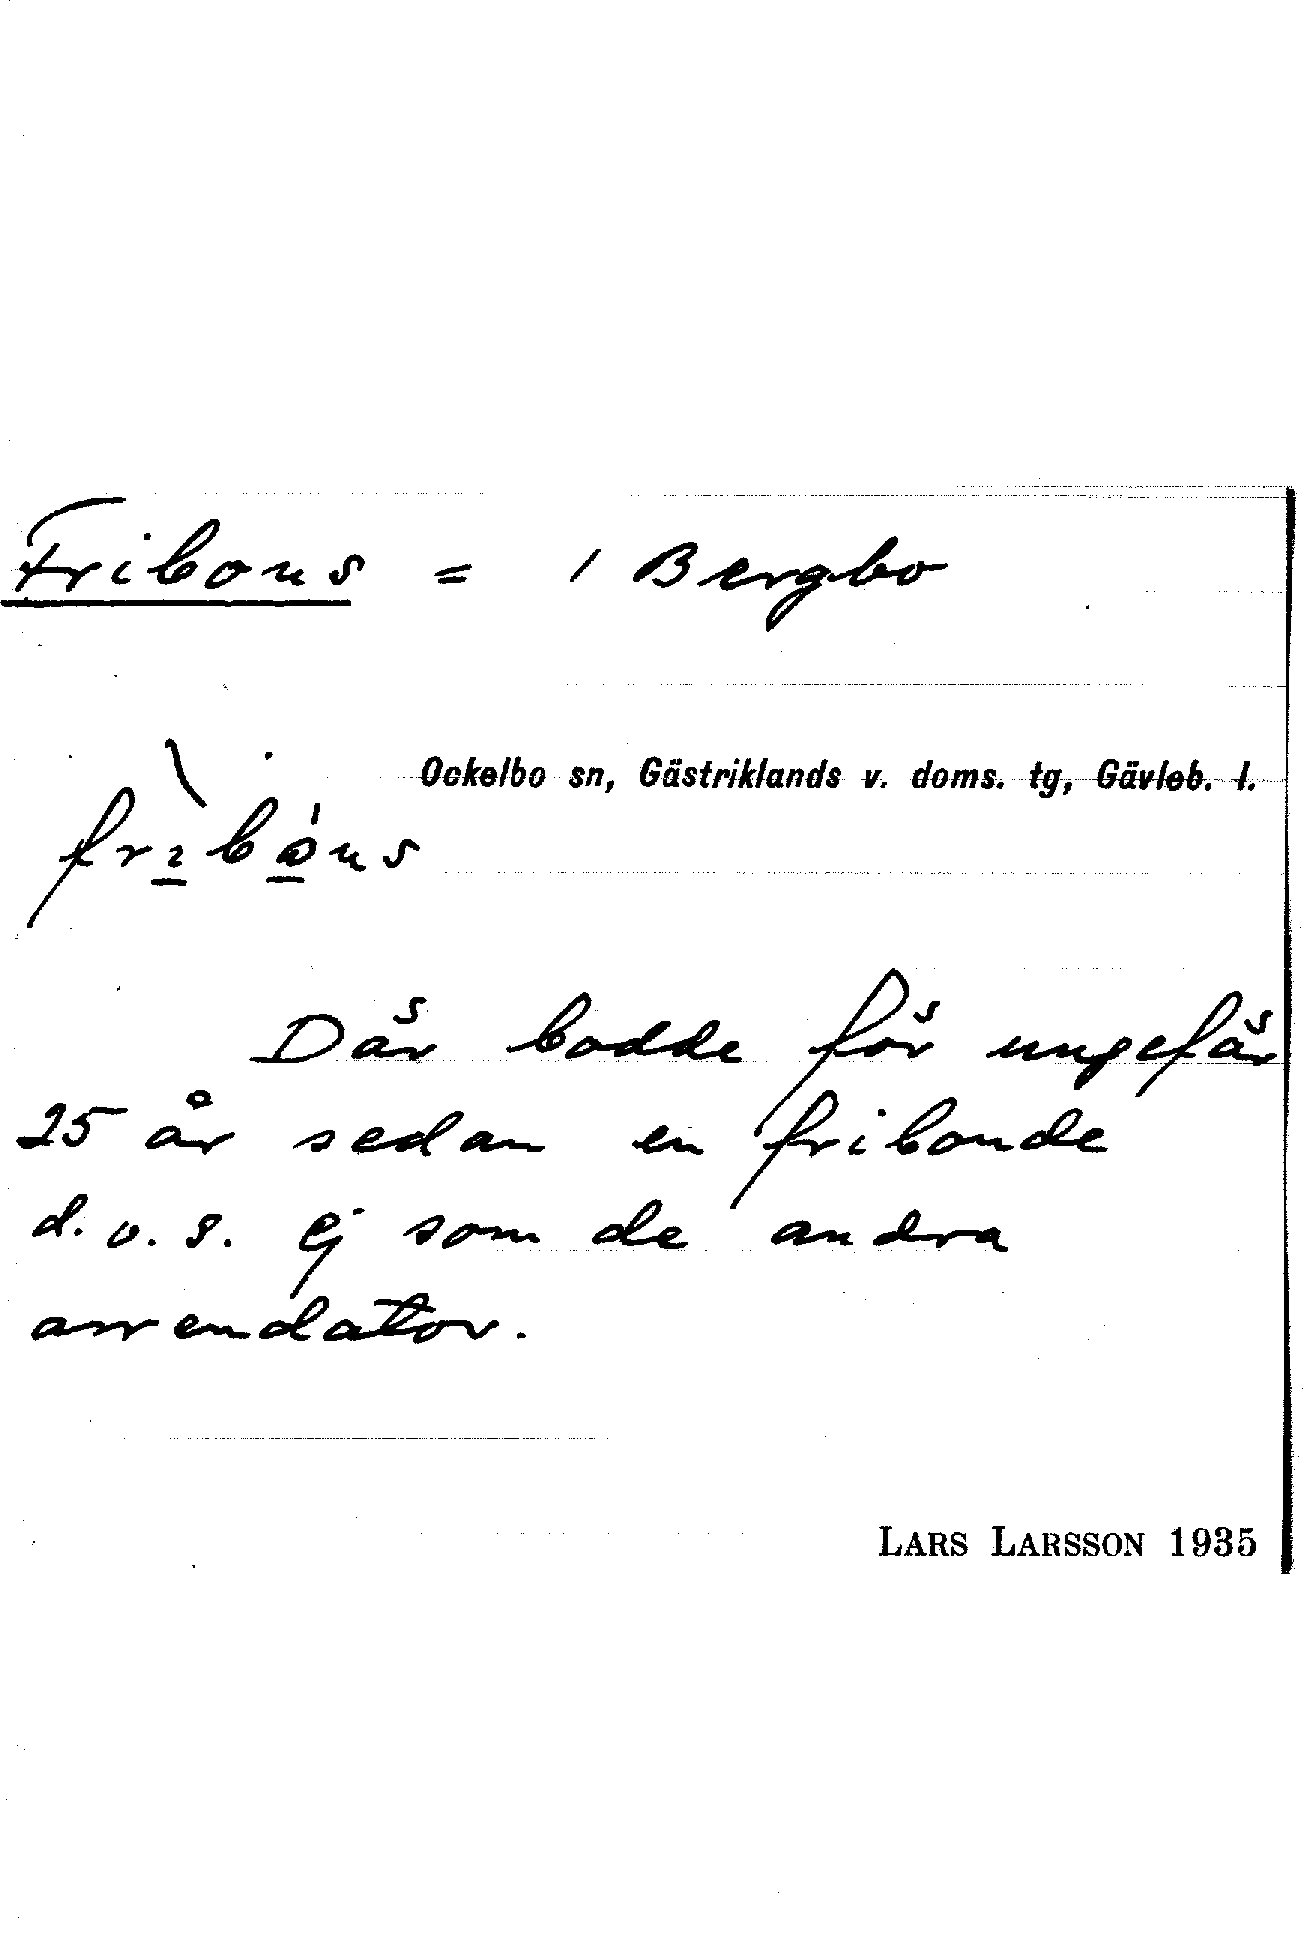 Fribons = / Bergbo
Ockelbo sn, Gästriklands v. doms. tg, Gävleb. l.
Där bodde för ungefär
25 år sedan en fribonde
d.v.s. ej som de andra
arrendator.
LARS LARSSON 1935